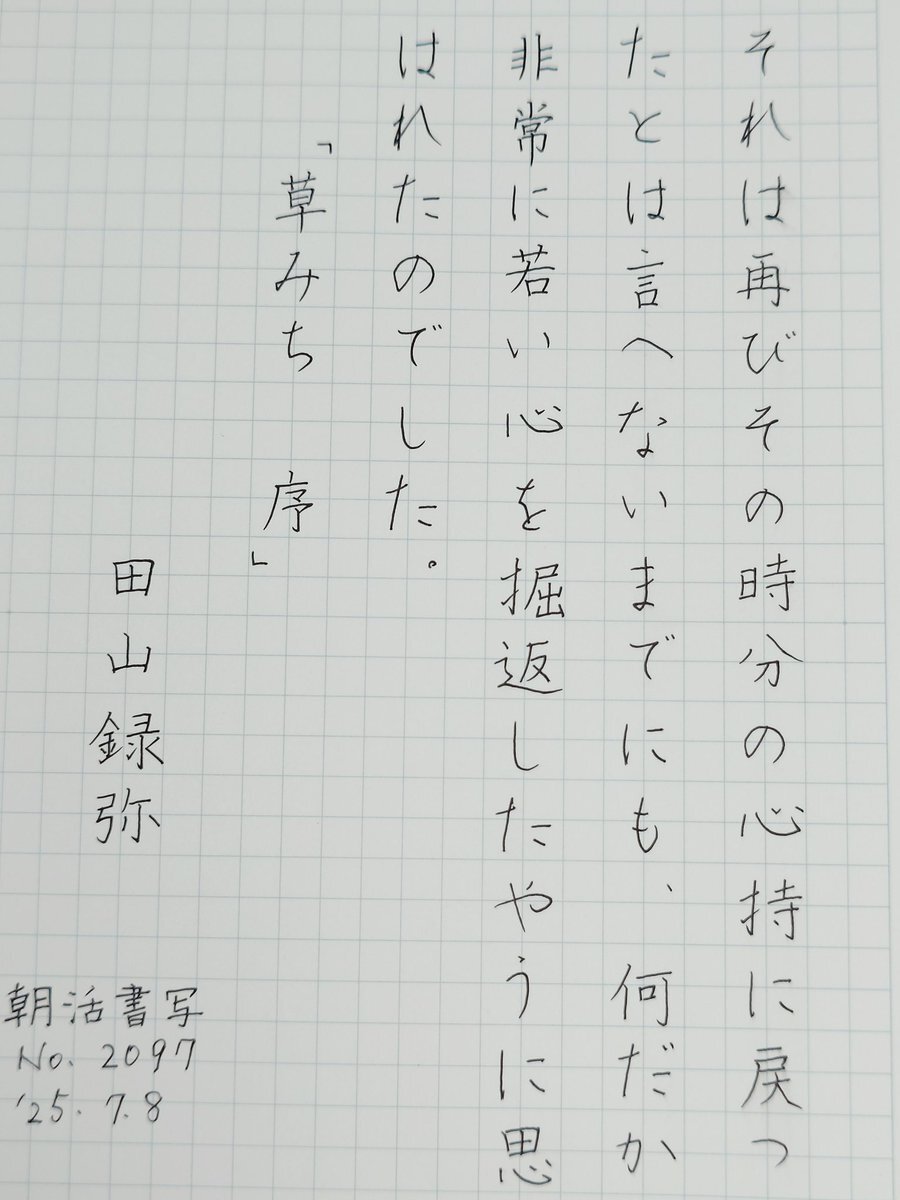 それは再びその時分の心持に戻つ
たとは言へないまでにも、何だか
非常に若い心を掘返したやうに思
はれたのでした。
「草みち 序」
田山録弥
朝活書写
No. 2097
'25. 7. 8